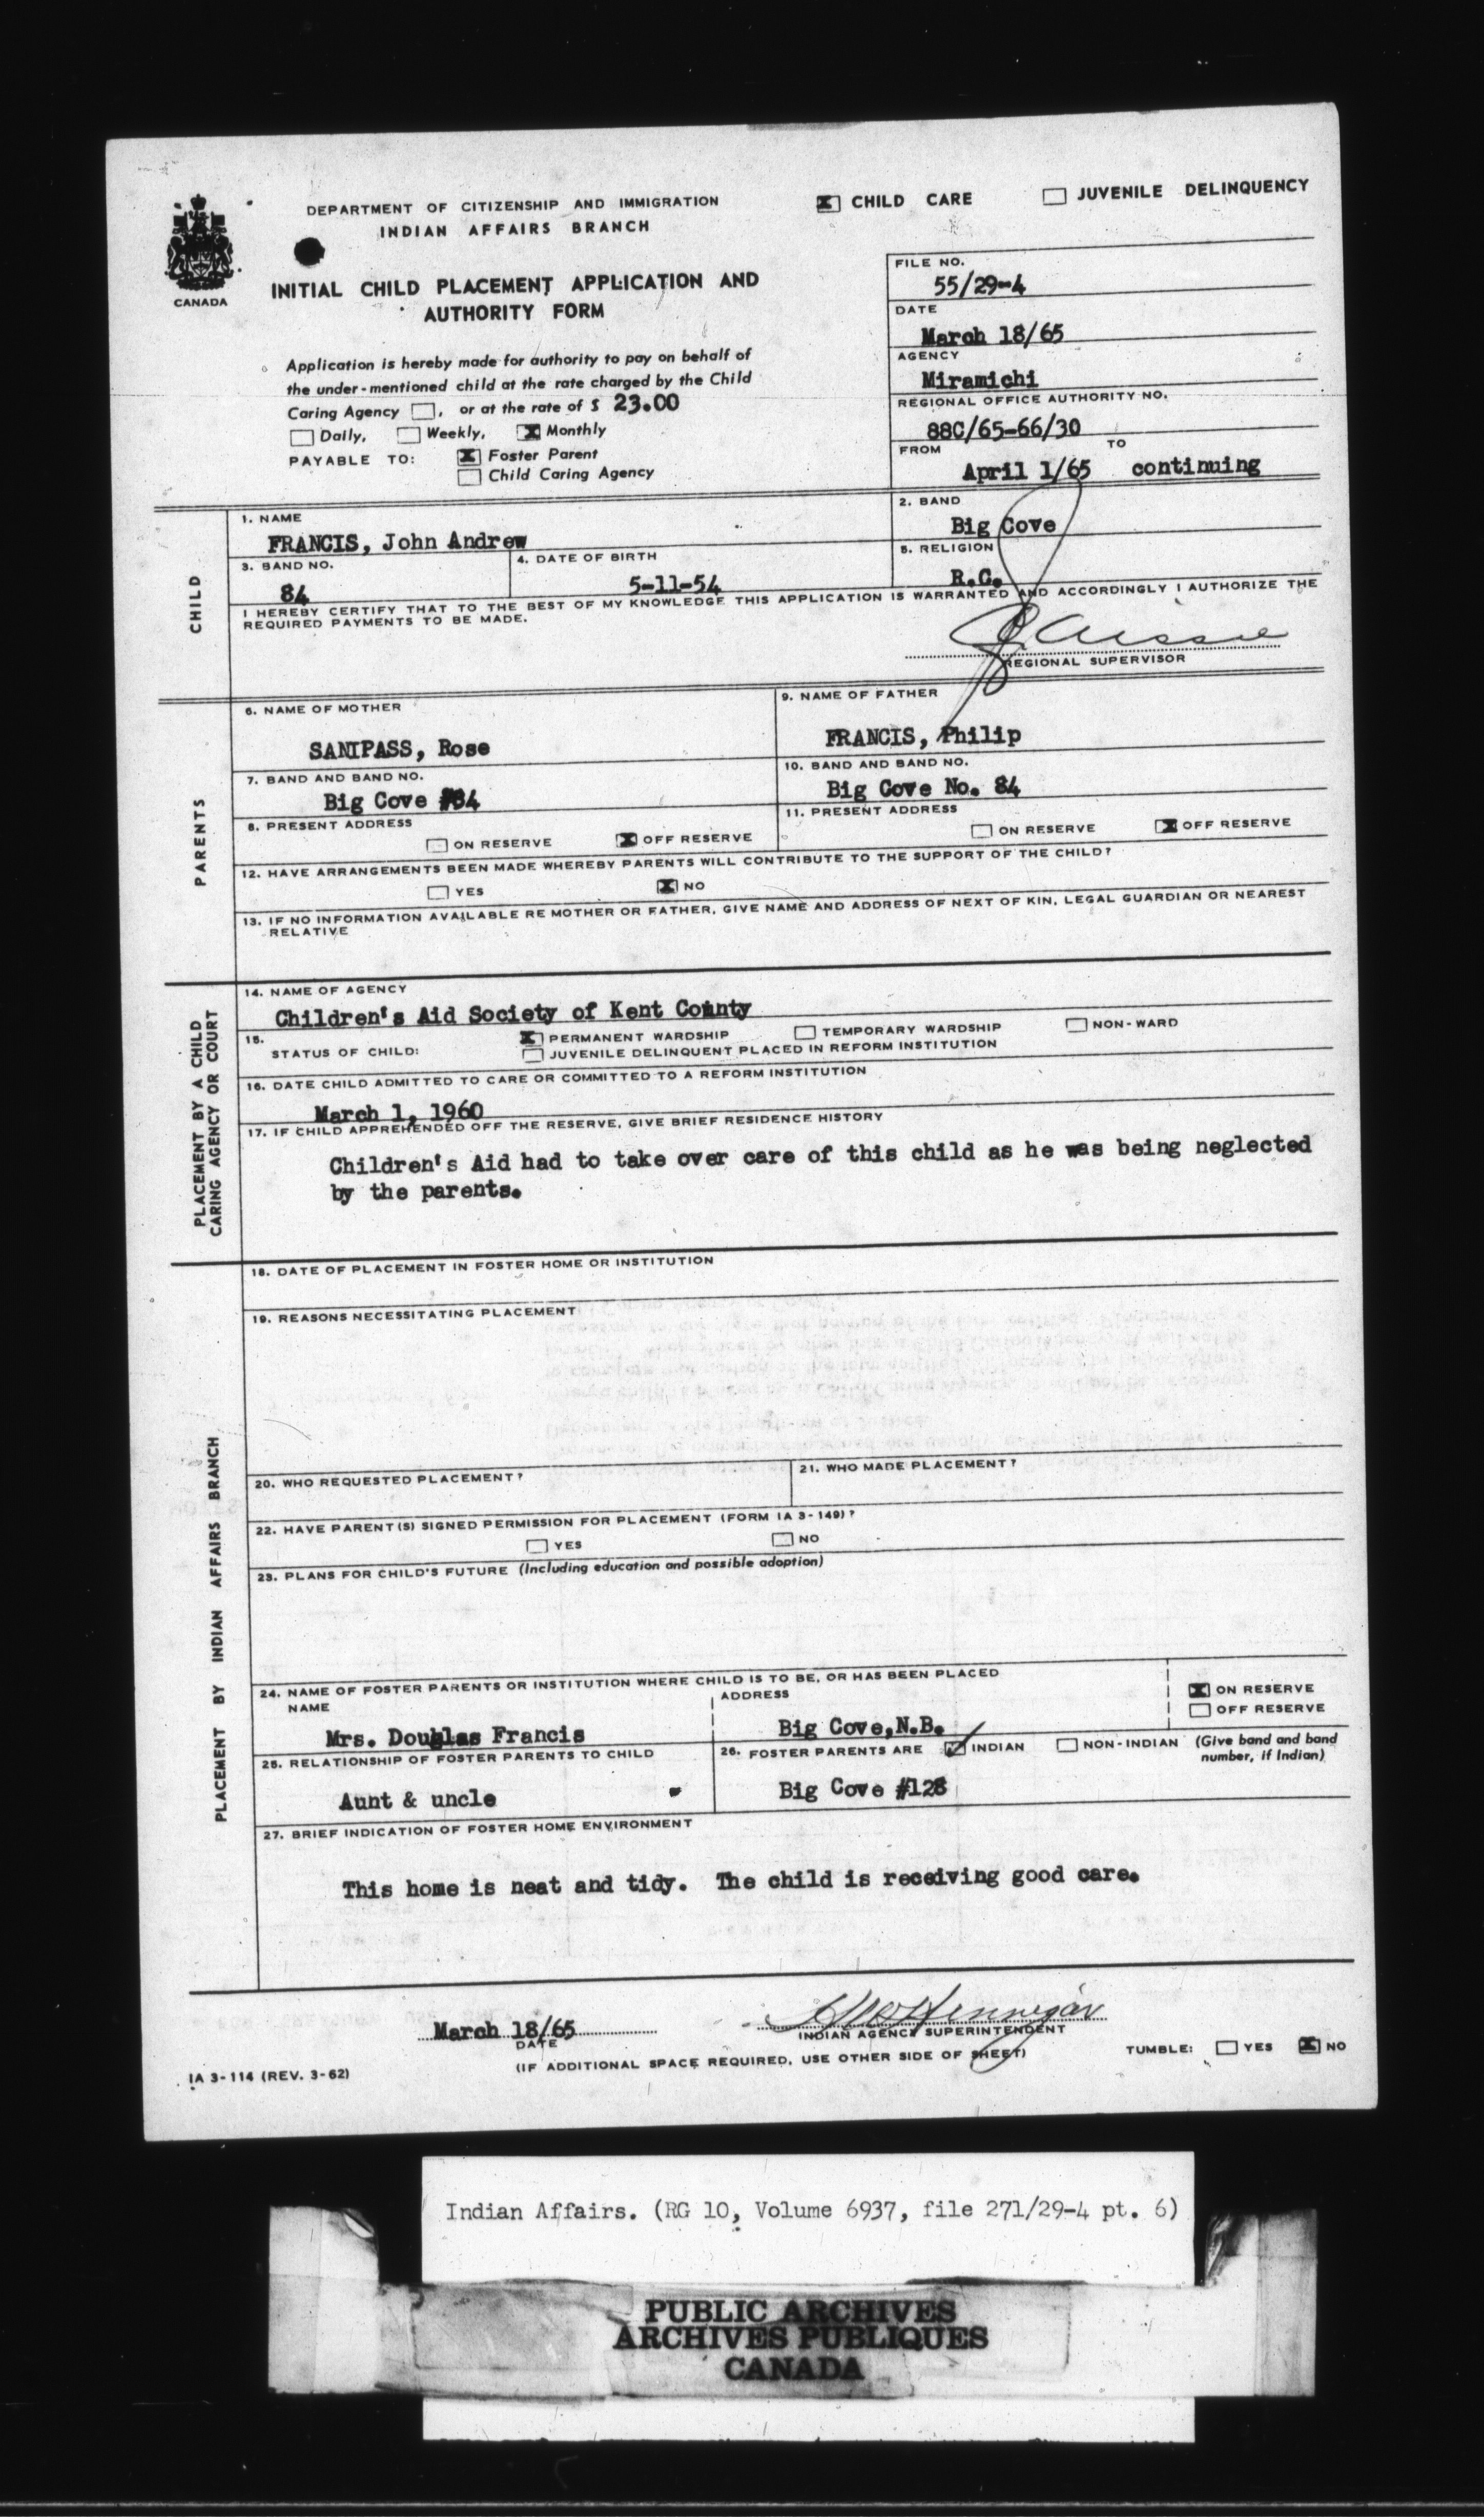 DEPARTMENT OF CITIZENSHIP AND IMMIGRATION
INDIAN AFFAIRS BRANCH
☒ CHILD CARE ☐ JUVENILE DELINQUENCY
CANADA
INITIAL CHILD PLACEMENT APPLICATION AND
AUTHORITY FORM
FILE NO.
55/29-4
DATE
March 18/65
AGENCY
Miramichi
REGIONAL OFFICE AUTHORITY NO.
88C/65-66/30
FROM TO
April 1/65 continuing
Application is hereby made for authority to pay on behalf of
the under-mentioned child at the rate charged by the Child
Caring Agency ☐, or at the rate of $ 23.00
☐ Daily, ☐ Weekly, ☒ Monthly
PAYABLE TO: ☒ Foster Parent
☐ Child Caring Agency
CHILD
1. NAME
FRANCIS, John Andrew
2. BAND
Big Cove
3. BAND NO.
84
4. DATE OF BIRTH
5-11-54
5. RELIGION
R.C.
I HEREBY CERTIFY THAT TO THE BEST OF MY KNOWLEDGE THIS APPLICATION IS WARRANTED AND ACCORDINGLY I AUTHORIZE THE
REQUIRED PAYMENTS TO BE MADE.
REGIONAL SUPERVISOR
PARENTS
6. NAME OF MOTHER
SANIPASS, Rose
9. NAME OF FATHER
FRANCIS, Philip
7. BAND AND BAND NO.
Big Cove #84
10. BAND AND BAND NO.
Big Cove No. 84
8. PRESENT ADDRESS
☐ ON RESERVE ☒ OFF RESERVE
11. PRESENT ADDRESS
☐ ON RESERVE ☒ OFF RESERVE
12. HAVE ARRANGEMENTS BEEN MADE WHEREBY PARENTS WILL CONTRIBUTE TO THE SUPPORT OF THE CHILD?
☐ YES ☒ NO
13. IF NO INFORMATION AVAILABLE RE MOTHER OR FATHER, GIVE NAME AND ADDRESS OF NEXT OF KIN, LEGAL GUARDIAN OR NEAREST
RELATIVE
PLACEMENT BY A CHILD
CARING AGENCY OR COURT
14. NAME OF AGENCY
Children's Aid Society of Kent County
15.
STATUS OF CHILD:
☒ PERMANENT WARDSHIP ☐ TEMPORARY WARDSHIP ☐ NON-WARD
☐ JUVENILE DELINQUENT PLACED IN REFORM INSTITUTION
16. DATE CHILD ADMITTED TO CARE OR COMMITTED TO A REFORM INSTITUTION
March 1, 1960
17. IF CHILD APPREHENDED OFF THE RESERVE, GIVE BRIEF RESIDENCE HISTORY
Children's Aid had to take over care of this child as he was being neglected
by the parents.
PLACEMENT BY INDIAN AFFAIRS BRANCH
18. DATE OF PLACEMENT IN FOSTER HOME OR INSTITUTION
19. REASONS NECESSITATING PLACEMENT
20. WHO REQUESTED PLACEMENT?
21. WHO MADE PLACEMENT?
22. HAVE PARENT(S) SIGNED PERMISSION FOR PLACEMENT (FORM IA 3-149)?
☐ YES ☐ NO
23. PLANS FOR CHILD'S FUTURE (Including education and possible adoption)
24. NAME OF FOSTER PARENTS OR INSTITUTION WHERE CHILD IS TO BE, OR HAS BEEN PLACED
NAME
Mrs. Douglas Francis
ADDRESS
Big Cove,N.B.
☒ ON RESERVE
☐ OFF RESERVE
25. RELATIONSHIP OF FOSTER PARENTS TO CHILD
Aunt & uncle
26. FOSTER PARENTS ARE ☑ INDIAN ☐ NON-INDIAN (Give band and band
number, if Indian)
Big Cove #128
27. BRIEF INDICATION OF FOSTER HOME ENVIRONMENT
This home is neat and tidy. The child is receiving good care.
March 18/65
DATE
INDIAN AGENCY SUPERINTENDENT
(IF ADDITIONAL SPACE REQUIRED, USE OTHER SIDE OF SHEET)
TUMBLE: ☐ YES ☒ NO
IA 3-114 (REV. 3-62)
Indian Affairs. (RG 10, Volume 6937, file 271/29-4 pt. 6)
PUBLIC ARCHIVES
ARCHIVES PUBLIQUES
CANADA